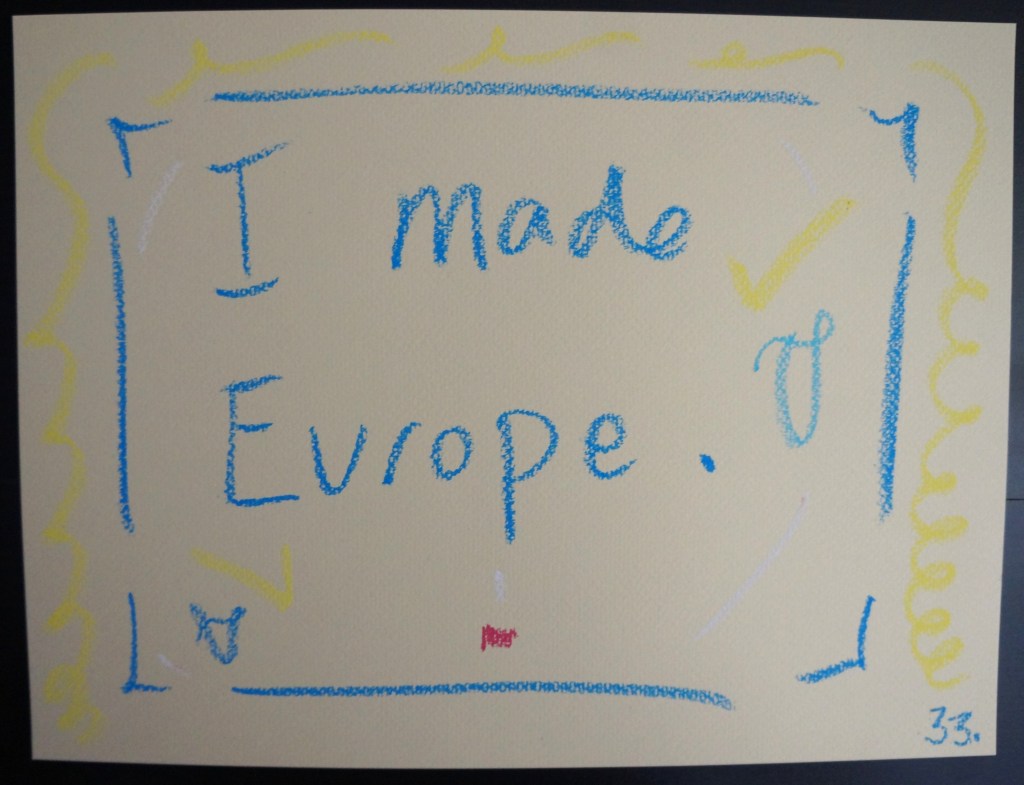 I made
Europe.
33.